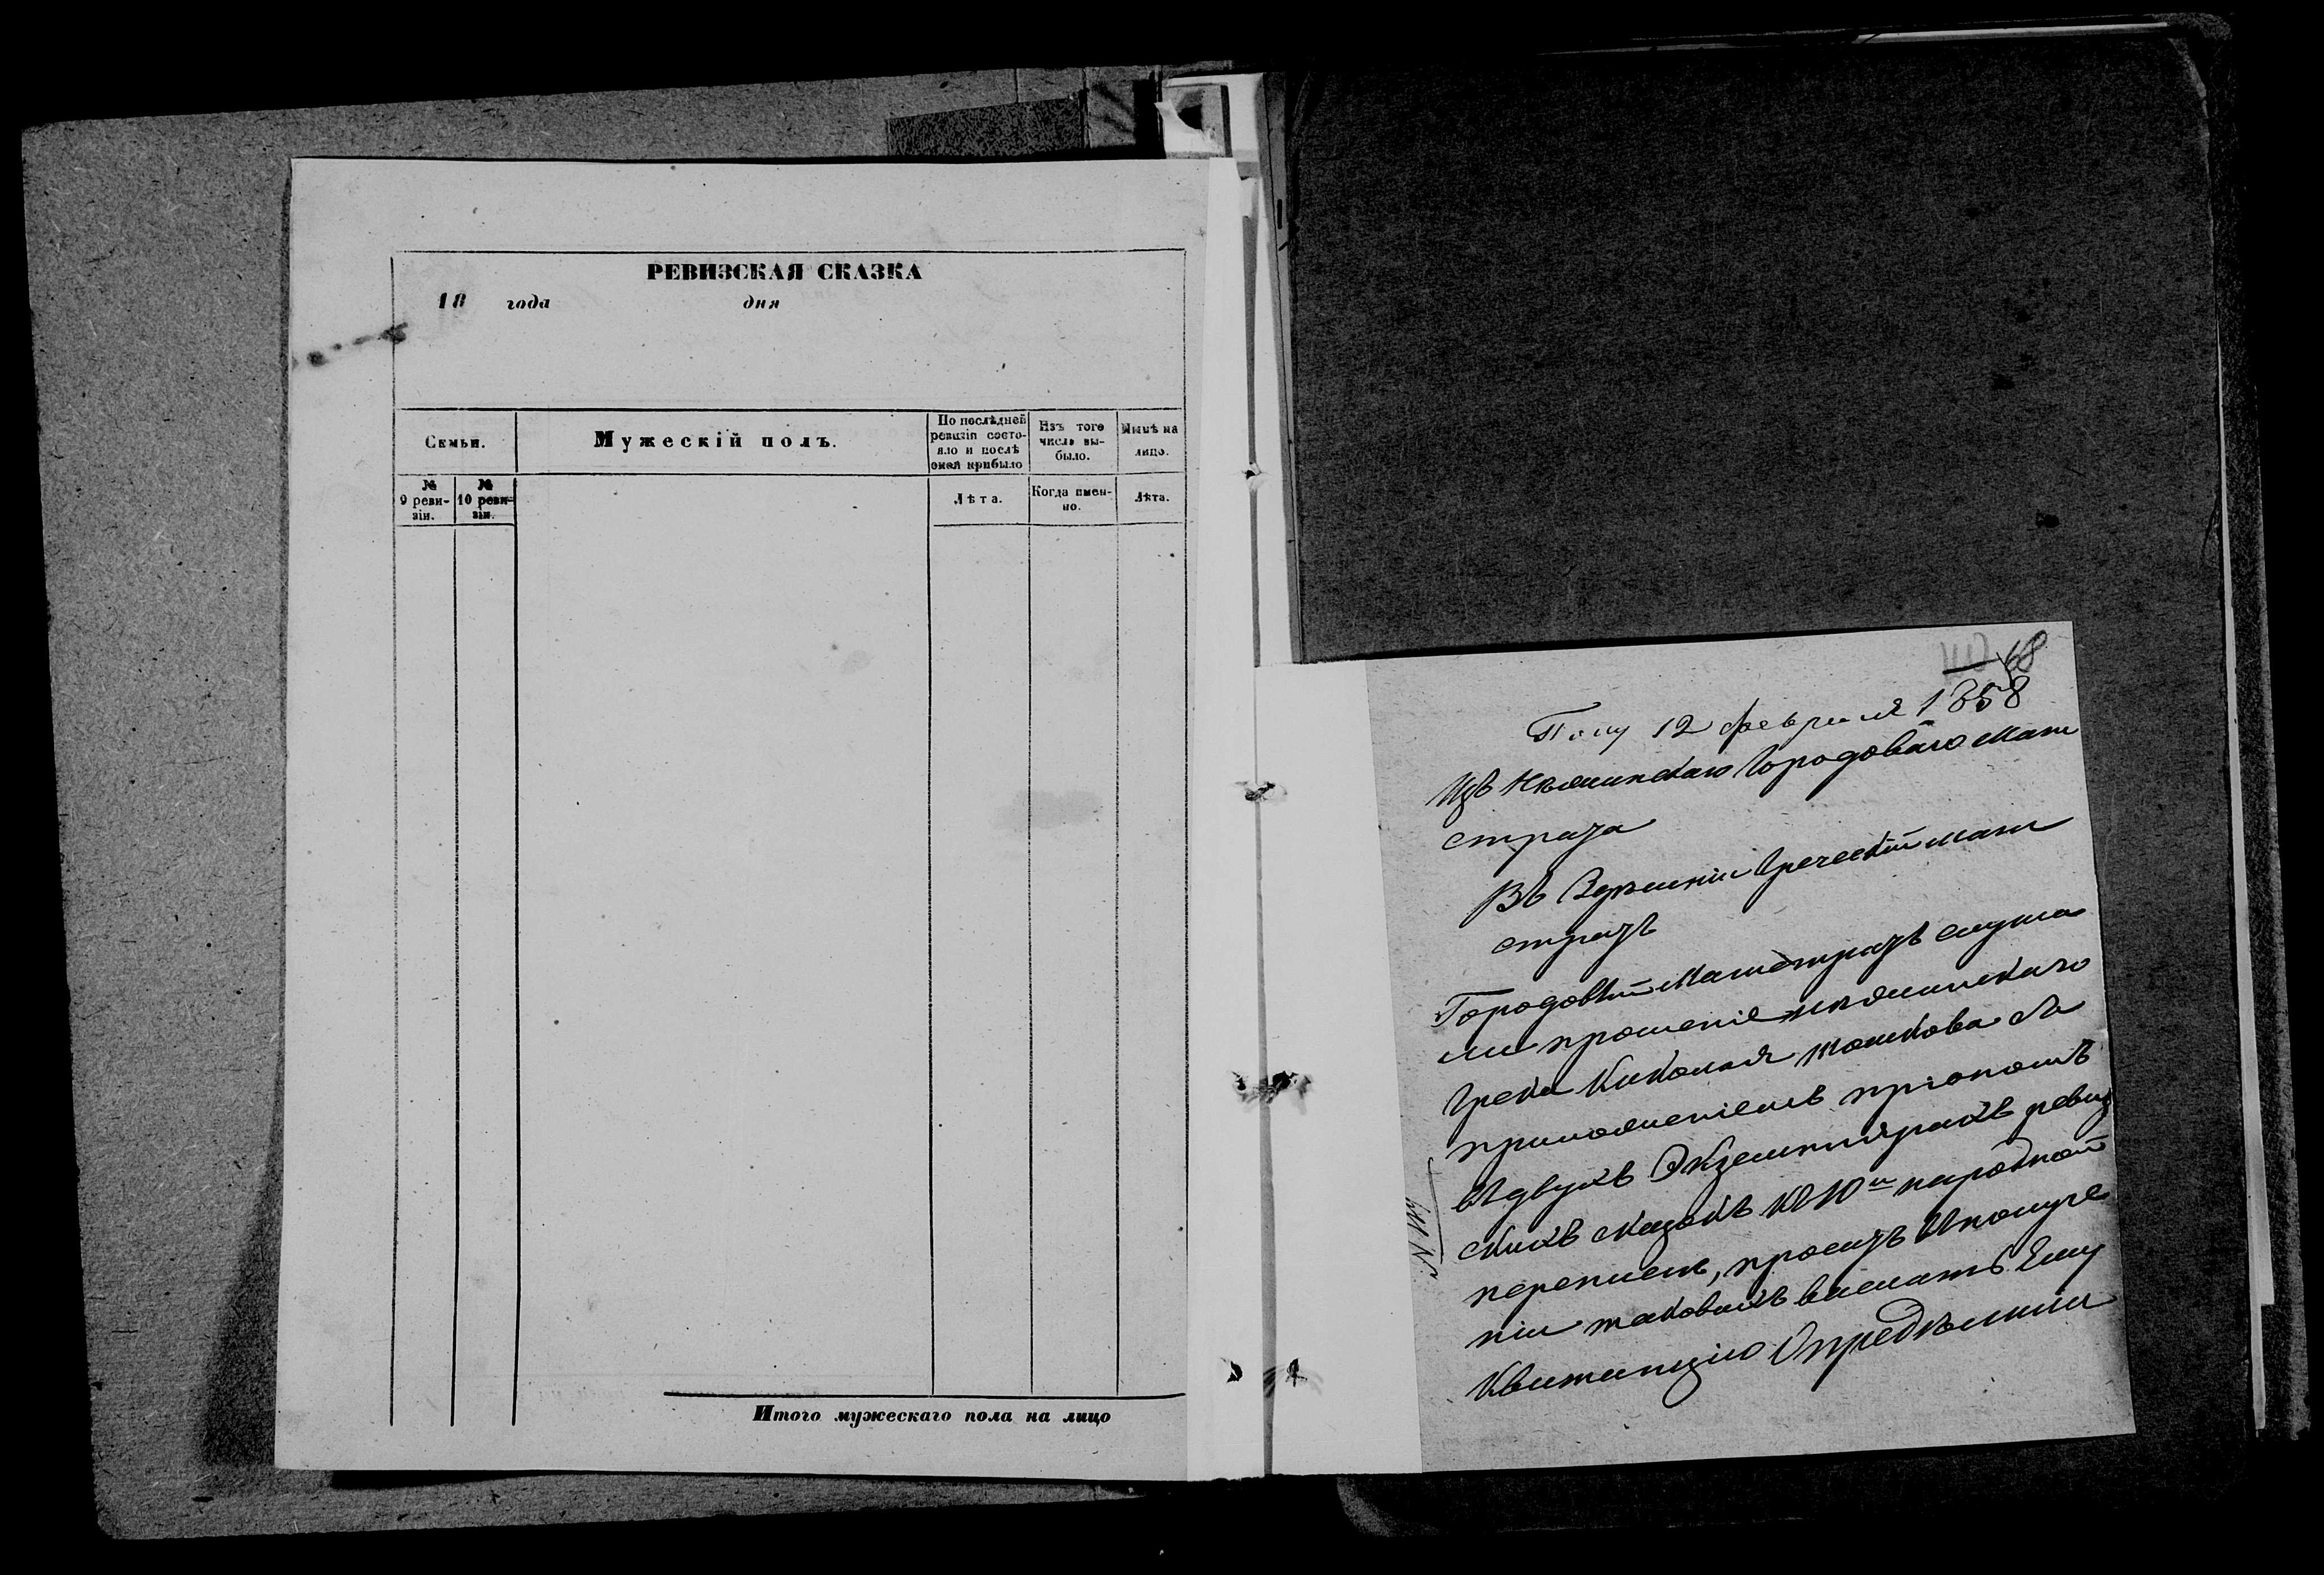 РЕВИЗСКАЯ СКАЗКА
18 года дня
Семьи.
Мужескій полъ.
По послѣдней
ревизіи состо-
яло и послѣ
оной прибыло
Изъ того
числа вы-
было.
Нынѣ на
лицо.
№
9 реви-
зіи.
№
10 реви-
зіи.
Лѣта.
Когда имен-
но.
Лѣта.
Итого мужескаго пола на лицо
68
Полу 12 февраля 1858
Изъ Нѣжинскаго Городоваго Маги
страта
Въ Нѣжинскій Греческій Маги
стратъ
Городовый Магистратъ слуша
ли прошеніе нѣжинскаго
Грека Николая съ
приложеніемъ при ономъ
въ двухъ Экземплярахъ ревиз
скихъ сказокъ 10й народной
переписи, проситъ по получе
ніи таковыхъ выслать Ему
Квитанцію Опредѣлили